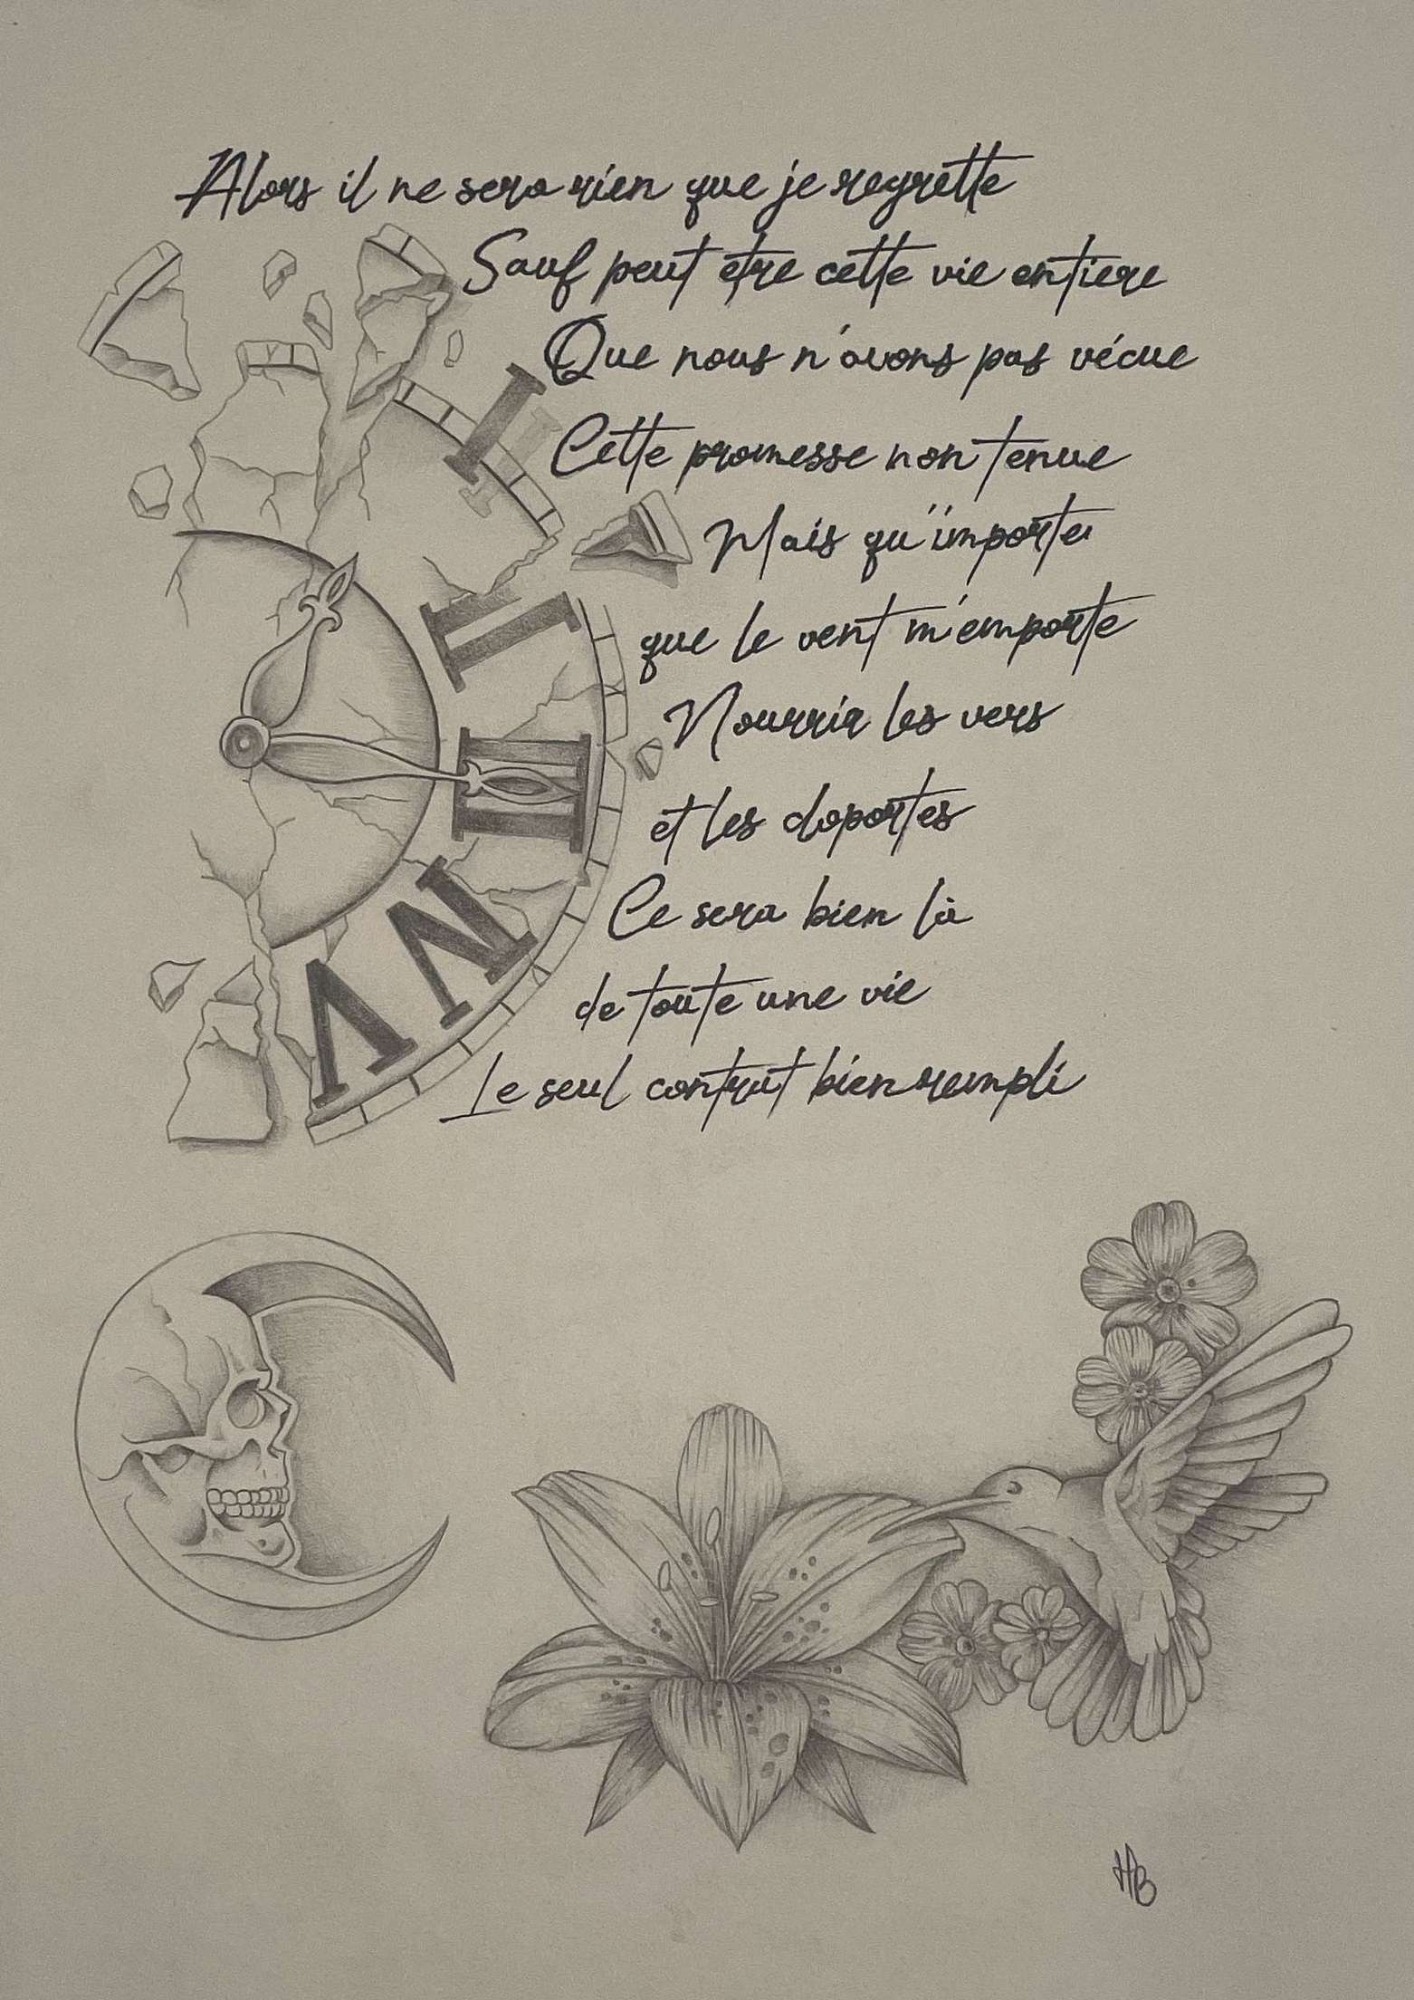 Alors il ne sera rien que je regrette
Sauf peut etre cette vie entiere
I
Que nous n'avons pas vécue
Cette promesse non tenue
Mais qu'importe
II
que le vent m'emporte
Nourrir les vers
III
et les cloportes
Ce sera bien là
IV
de toute une vie
V
Le seul contrat bien rempli
HB